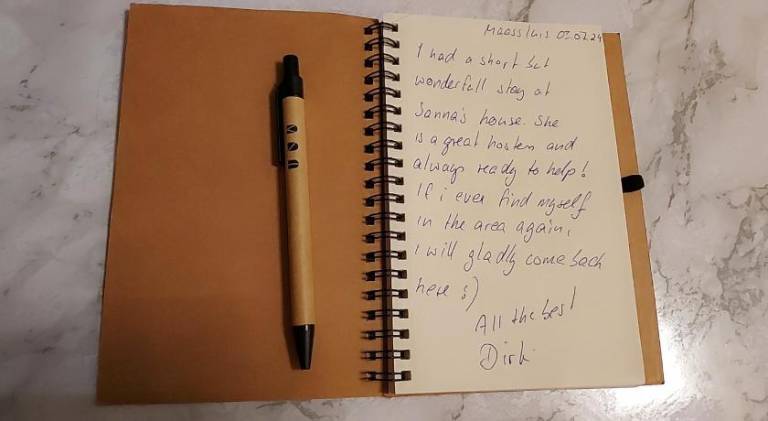 Maassluis 07.07.24
I had a short but
wonderfull stay at
Sanna's house. She
is a great hosten and
always ready to help!
If i ever find myself
in the area again,
I will gladly come back
here :)
All the best
Dirk